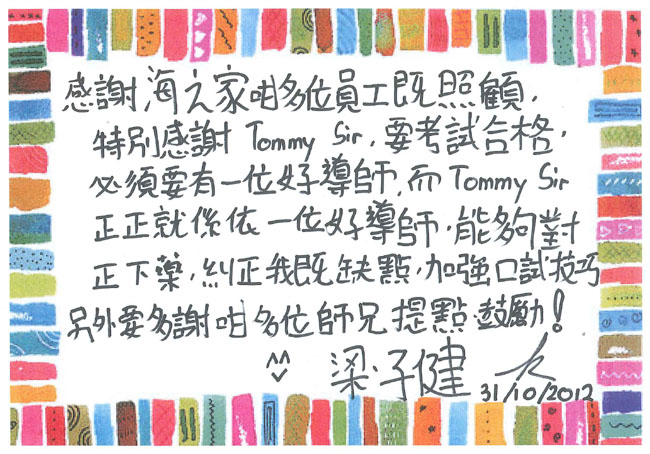 感謝海之家咁多位員工既照顧，
特別感謝 Tommy Sir，要考試合格，
必須要有一位好導師，而 Tommy Sir
正正就係依一位好導師，能夠對
正下藥，糾正我既缺點，加強口試技巧
另外要多謝咁多位師兄提點鼓勵！
^^ 梁子健
31/10/2012